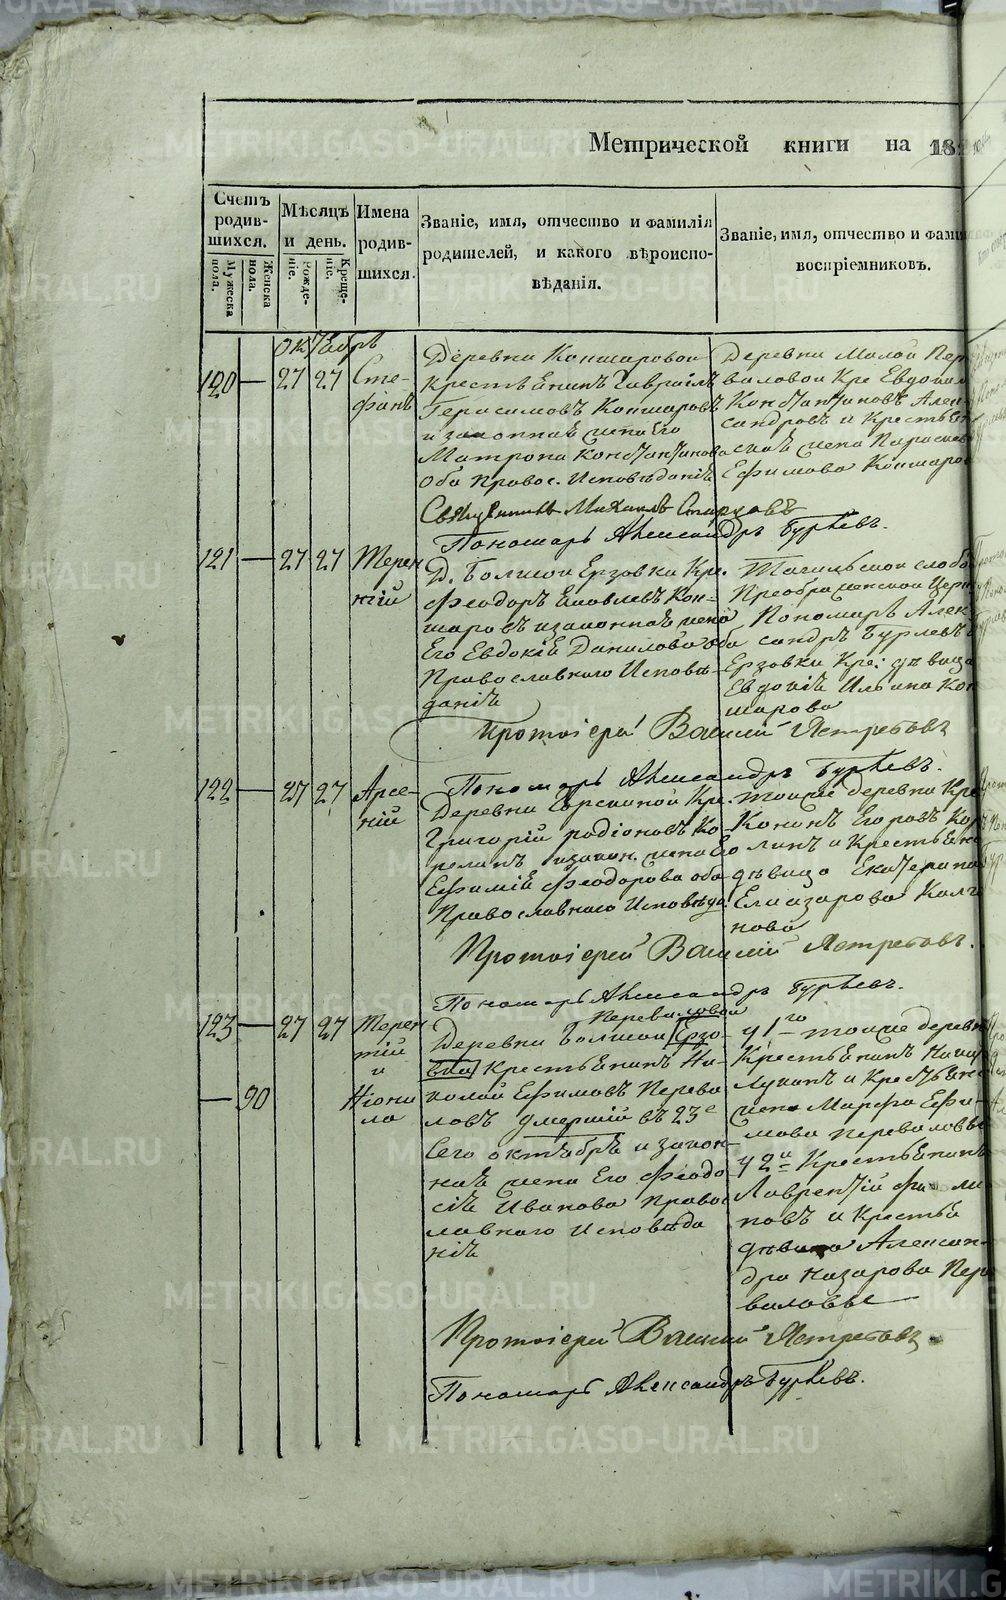 Метрической книги на 18
Счетъ родив-шихся.
Мужеска пола.
Женска пола.
Мѣсяцъ и день.
Рожде-ніе.
Креще-ніе.
Имена родив-шихся.
Званіе, имя, отчество и фамилія
родителей, и какого вѣроиспо-
вѣданія.
Званіе, имя, отчество и фами
воспріемниковъ.
Октября
120 — 27 27 Сте-
фанъ
Деревни Кокшаровой
крестьянинъ Гавріилъ
Герасимовъ Кокшаровъ
и законная жена его
Матрона Константинова
оба правос. исповѣданія
Деревни Малой Пер
валовой Кре Евдоким
Константиновъ Алек-
сандровъ и крестьян
ская жена Параскев
Ефимова Кокшаров
Священникъ Михаилъ
Пономарь Александръ Бурлевъ.
121 — 27 27 Терен
тій
Д. Болшой Ерзовки Кре.
Феодоръ Яковлевъ Кок-
шаровъ и законная жена
его Евдокія Данилова оба
Православнаго Исповѣ-
данія
Тагильской слобо
Преображенской Церк
Пономарь Алек-
сандръ Бурлевъ и
Ерзовки Кре: дѣвица
Евдокія Ильина Кок
шарова
Протоіерей Василій Ястребовъ
Пономарь Александръ Бурлевъ.
122 — 27 27 Арсе-
ній
Деревни Кре.
Григорій Родіоновъ Ко-
релинъ и закон. жена его
Ефимія Феодорова оба
Православнаго Исповѣда
Тоиже деревни Кре
Кононъ Егоровъ Кор
линъ и крестьянс
дѣвица Екатерина
Елиазарова Калга
нова
Протоіерей Василій Ястребовъ.
Пономарь Александръ Бурлевъ.
123 — 27 27 Терен
тій
и
— 90 Неони
ла
Переваловой
Деревни Болшой Ерзо-
вки крестьянинъ Ни-
колай Ефимовъ Перева
ловъ умершій въ 23е
сего октября и закон-
ная жена его Феодо
сія Иванова право
славнаго исповѣда
нія
у 1го тоиже деревни
Крестьянинъ
Лукинъ и крестьянс
жена Марфа Ефи-
мова Переваловы
у 2й крестьянинъ
Лаврентій
новъ и крестья
дѣвица Алексан-
дра Назарова Пере
валовы
Протоіерей Василій Ястребовъ
Пономарь Александръ Бурлевъ.
METRIKI.GASO-URAL.RU